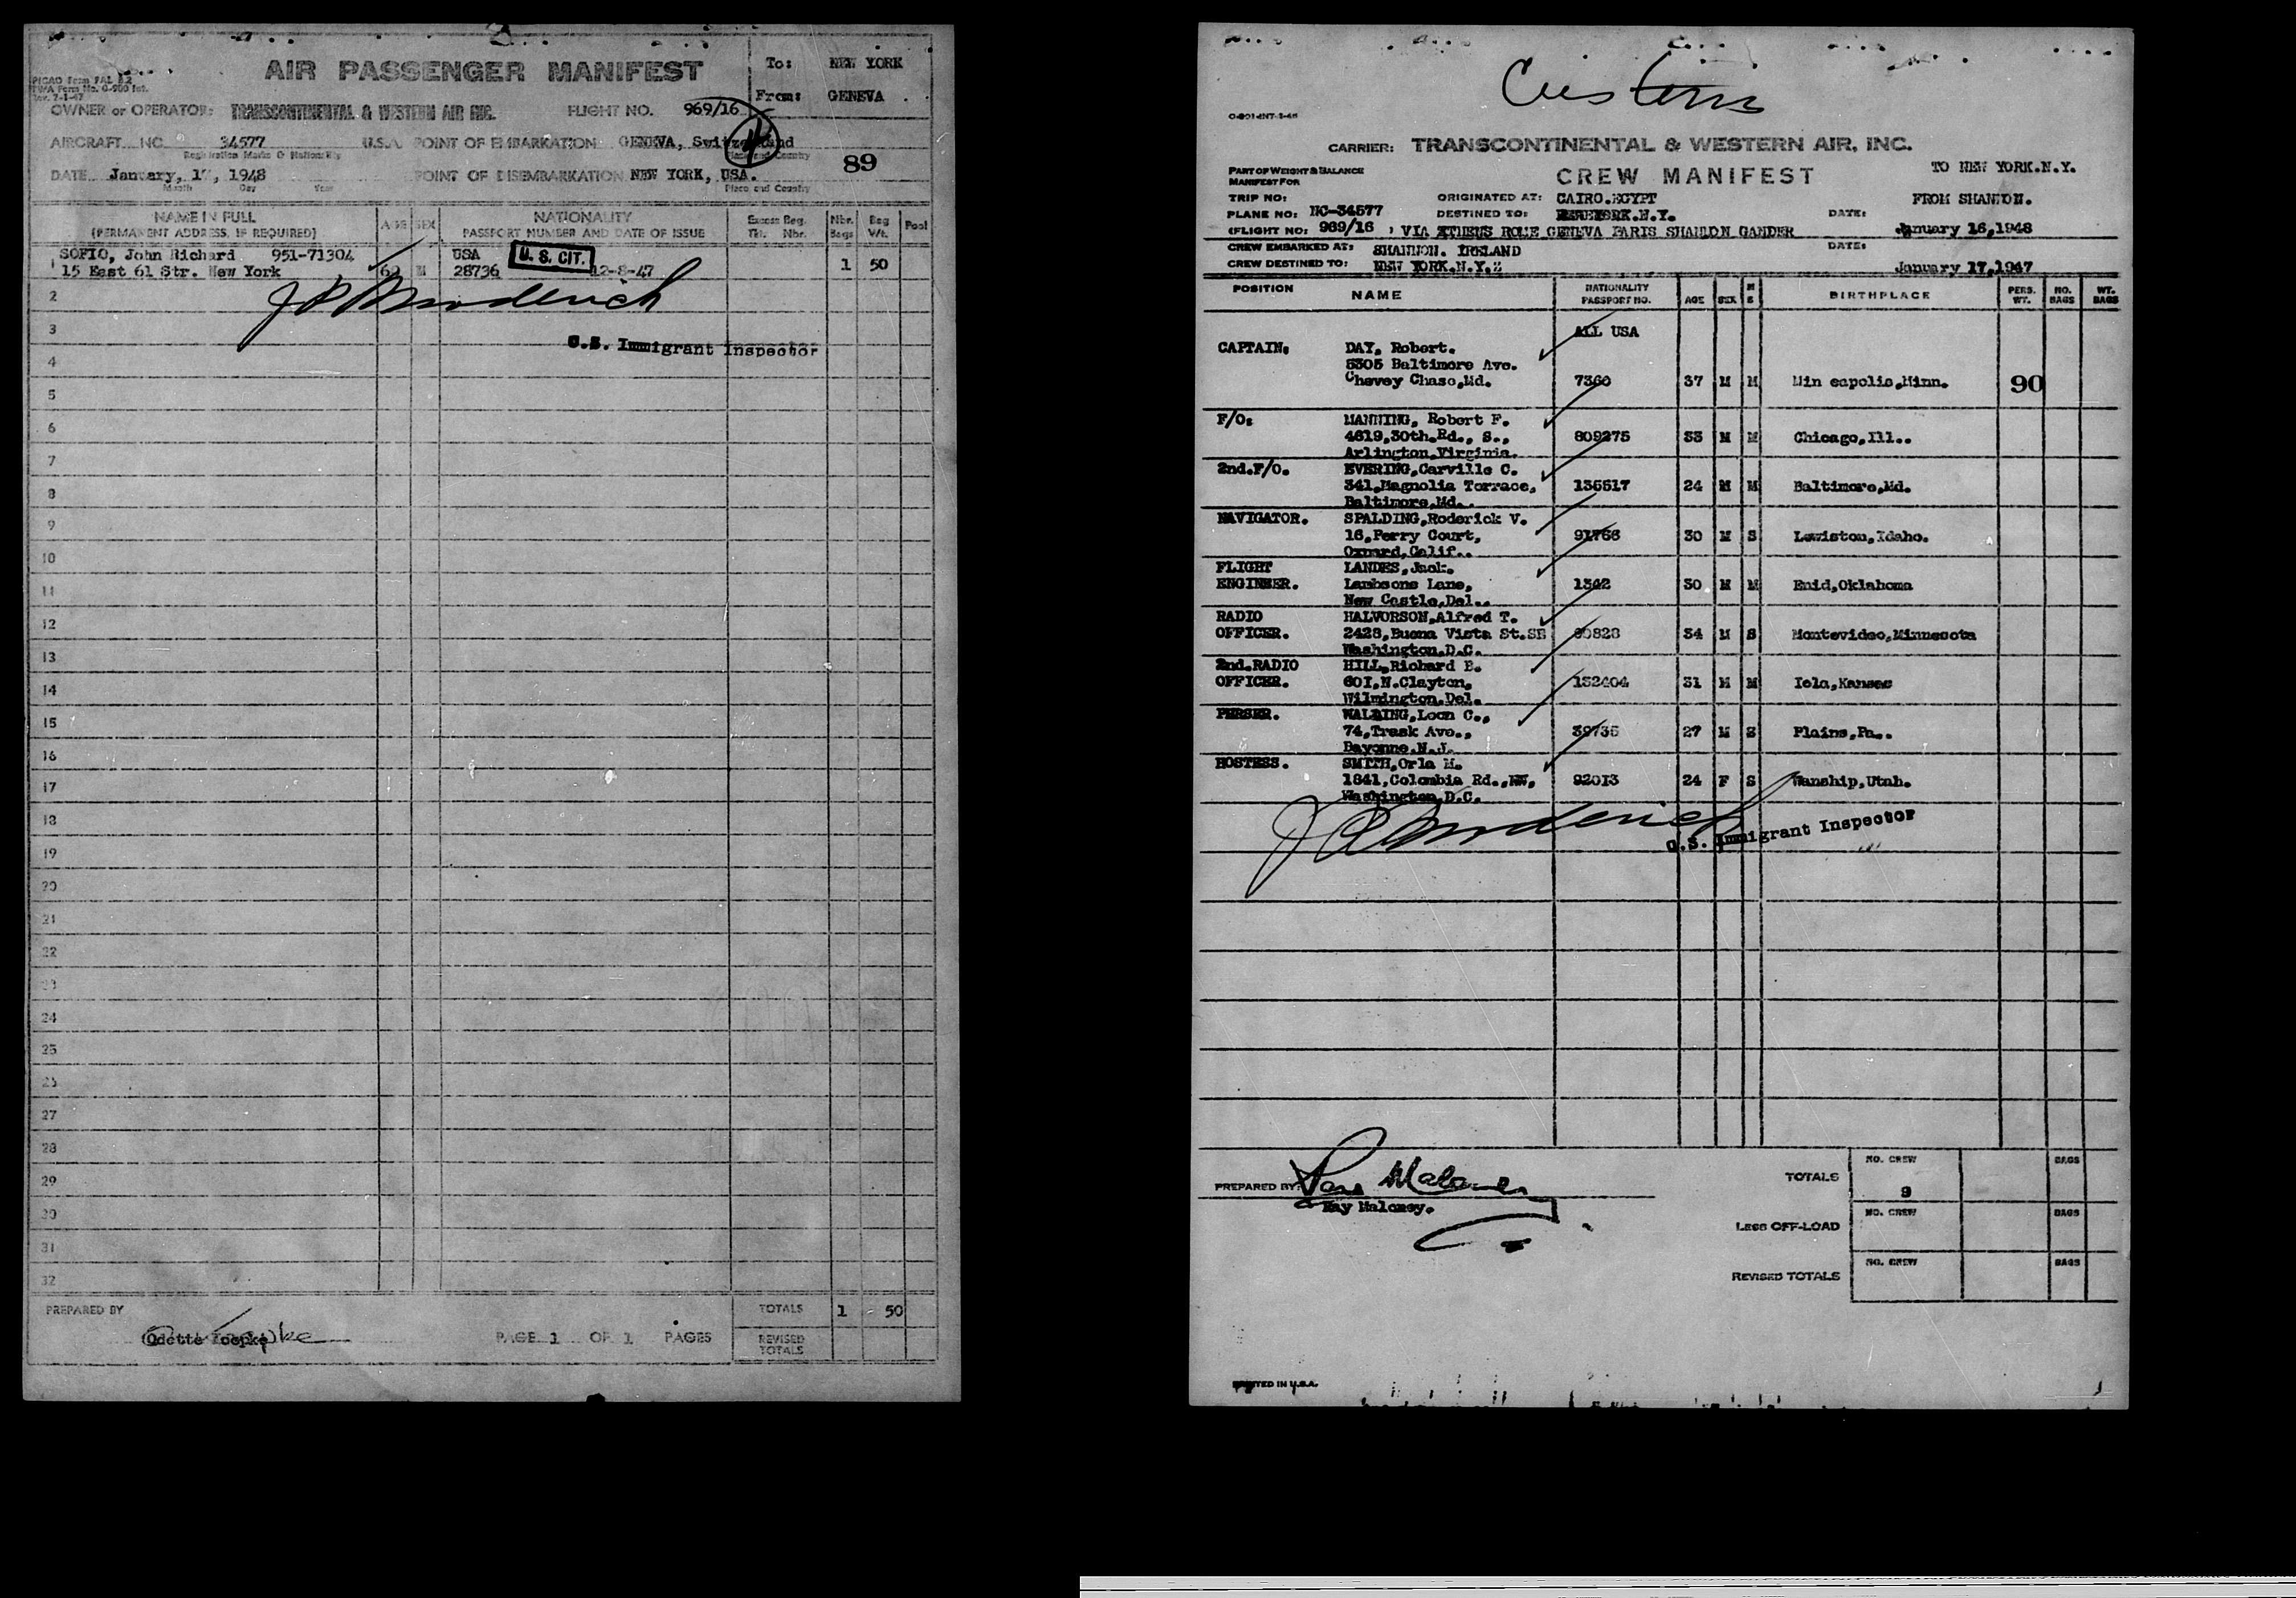 AIR PASSENGER MANIFEST
To: NEW YORK
From: GENEVA
PICAO Form FAL 2.2
TWA Form No. O-900 Int.
Rev. 7-1-47
OWNER or OPERATOR: TRANSCONTINENTAL & WESTERN AIR INC. FLIGHT NO. 969/16
AIRCRAFT NO. 34577 U.S.A. POINT OF EMBARKATION GENEVA, Switzerland
Registration Marks & Nationality Place and Country
89
DATE January, 1 , 1948 POINT OF DISEMBARKATION NEW YORK, USA.
Month Day Year Place and Country
NAME IN FULL
(PERMANENT ADDRESS, IF REQUIRED)
AGE SEX
NATIONALITY
PASSPORT NUMBER AND DATE OF ISSUE
Excess Bag.
Tkt. Nbr.
Nbr. Bags
Bag Wt.
Pool
1 SOFIO, John Richard 951-71304 USA U. S. CIT.
15 East 61 Str. New York 69 M 28736 12-8-47 1 50
2
3
U.S. Immigrant Inspector
4
5
6
7
8
9
10
11
12
13
14
15
16
17
18
19
20
21
22
23
24
25
26
27
28
29
30
31
32
PREPARED BY
Odette
PAGE 1 OF 1 PAGES
TOTALS 1 50
REVISED TOTALS
O-801-INT-1-46
CARRIER: TRANSCONTINENTAL & WESTERN AIR, INC.
PART OF WEIGHT & BALANCE
MANIFEST FOR
CREW MANIFEST
TO NEW YORK.N.Y.
TRIP NO: ORIGINATED AT: CAIRO.EGYPT FROM SHANNON.
PLANE NO: NC-34577 DESTINED TO: NEWYORK.N.Y. DATE:
(FLIGHT NO: 969/16 ) VIA ATHENS ROME GENEVA PARIS SHANNON GANDER January 16,1948
CREW EMBARKED AT: SHANNON. IRELAND DATE:
CREW DESTINED TO: NEW YORK.N.Y. January 17,1947
POSITION NAME NATIONALITY PASSPORT NO. AGE SEX M S BIRTHPLACE PERS. WT. NO. BAGS WT. BAGS
ALL USA
CAPTAIN: DAY, Robert.
5305 Baltimore Ave.
Chevey Chase,Md. 7360 37 M M Min eapolis,Minn. 90
F/O: MANNING, Robert F.
4619,30th.Rd., S., 809275 33 M M Chicago,Ill..
Arlington,Virginia.
2nd.F/O. EVERING,Carville C.
341,Magnolia Terrace, 136617 24 M M Baltimore,Md.
Baltimore,Md..
NAVIGATOR. SPALDING,Roderick V.
16,Perry Court, 91766 30 M S Lewiston,Idaho.
Oxnard,Calif..
FLIGHT LANDES,Jack.
ENGINEER. Lambsons Lane, 1342 30 M M Enid,Oklahoma
New Castle,Del..
RADIO HALVORSON,Alfred T.
OFFICER. 2428,Buena Vista St.SE 34 M S Montevideo,Minnesota
Washington,D.C.
2nd.RADIO HILL,Richard E.
OFFICER. 601,N.Clayton, 132404 31 M M Iola,Kansas
Wilmington,Del.
PURSER. WALDING,Leon C.,
74,Trask Ave., 39735 27 M S Plains,Pa..
Bayonne.N.J.
HOSTESS. SMITH,Orla M.
1841,Colombia Rd.,NW, 92013 24 F S Wanship,Utah.
Washington,D.C.
U.S. Immigrant Inspector
PREPARED BY:
Ray Maloney.
TOTALS NO. CREW 9 BAGS
LESS OFF-LOAD NO. CREW BAGS
REVISED TOTALS NO. CREW BAGS
PRINTED IN U.S.A.